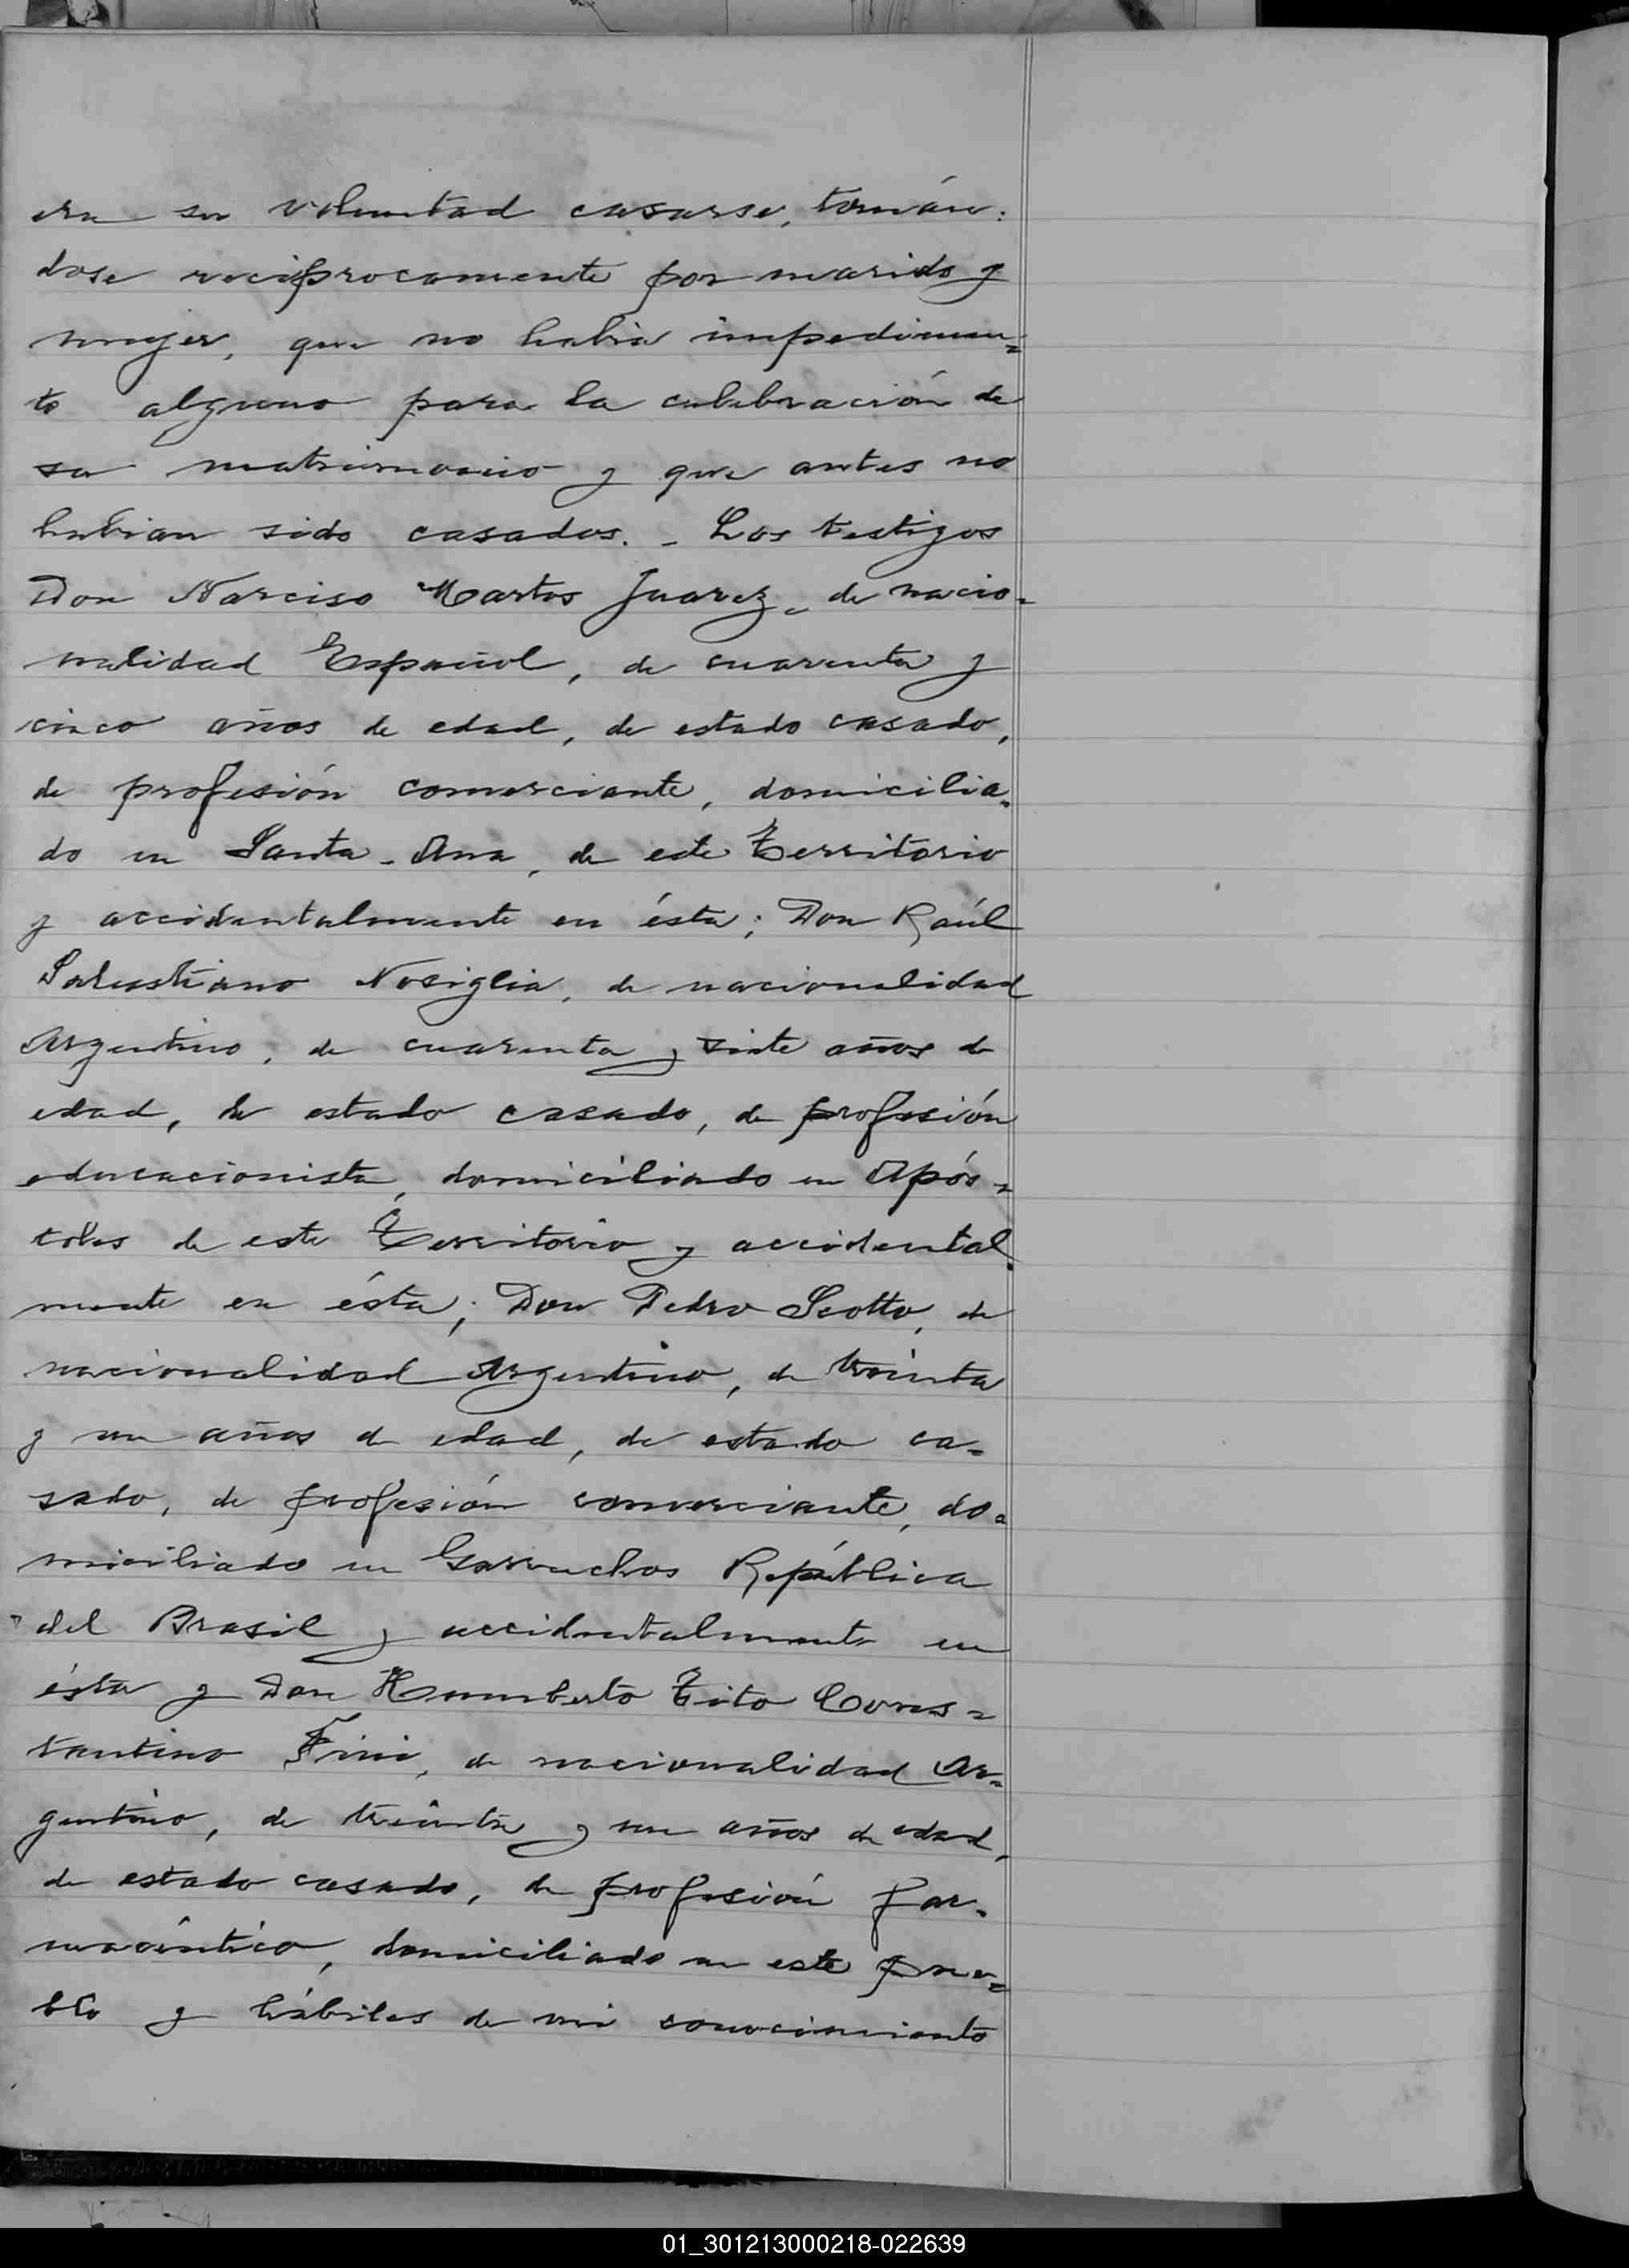 era su voluntad casarse, tomán-
dose reciprocamente por marido y
mujer, que no habia impedimen=
to alguno para la celebración de
su matrimonio y que antes no
habian sido casados. - Los testigos
Don Narciso Martos Juarez, de nacio-
nalidad Español, de cuarenta y
cinco años de edad, de estado casado,
de profesión comerciante, domicilia-
do en Santa-Ana, de este Territorio
y accidentalmente en ésta; Don Raúl
Salustiano Nosiglia, de nacionalidad
Argentino, de cuarenta y siete años de
edad, de estado casado, de profesión
educacionista, domiciliado en Após=
toles de este Territorio y accidental-
mente en ésta; Don Pedro Scotto, de
nacionalidad Argentino, de treinta
y un años de edad, de estado ca=
sado, de profesión comerciante, do=
miciliado en Garruchos República
del Brasil y accidentalmente en
ésta y Don Humberto Tito Cons=
tantino Fini, de nacionalidad Ar=
gentino, de treinta y un años de edad,
de estado casado, de profesión far-
macéutico, domiciliado en este pue=
blo y hábiles de mi conocimiento
01_301213000218-022639